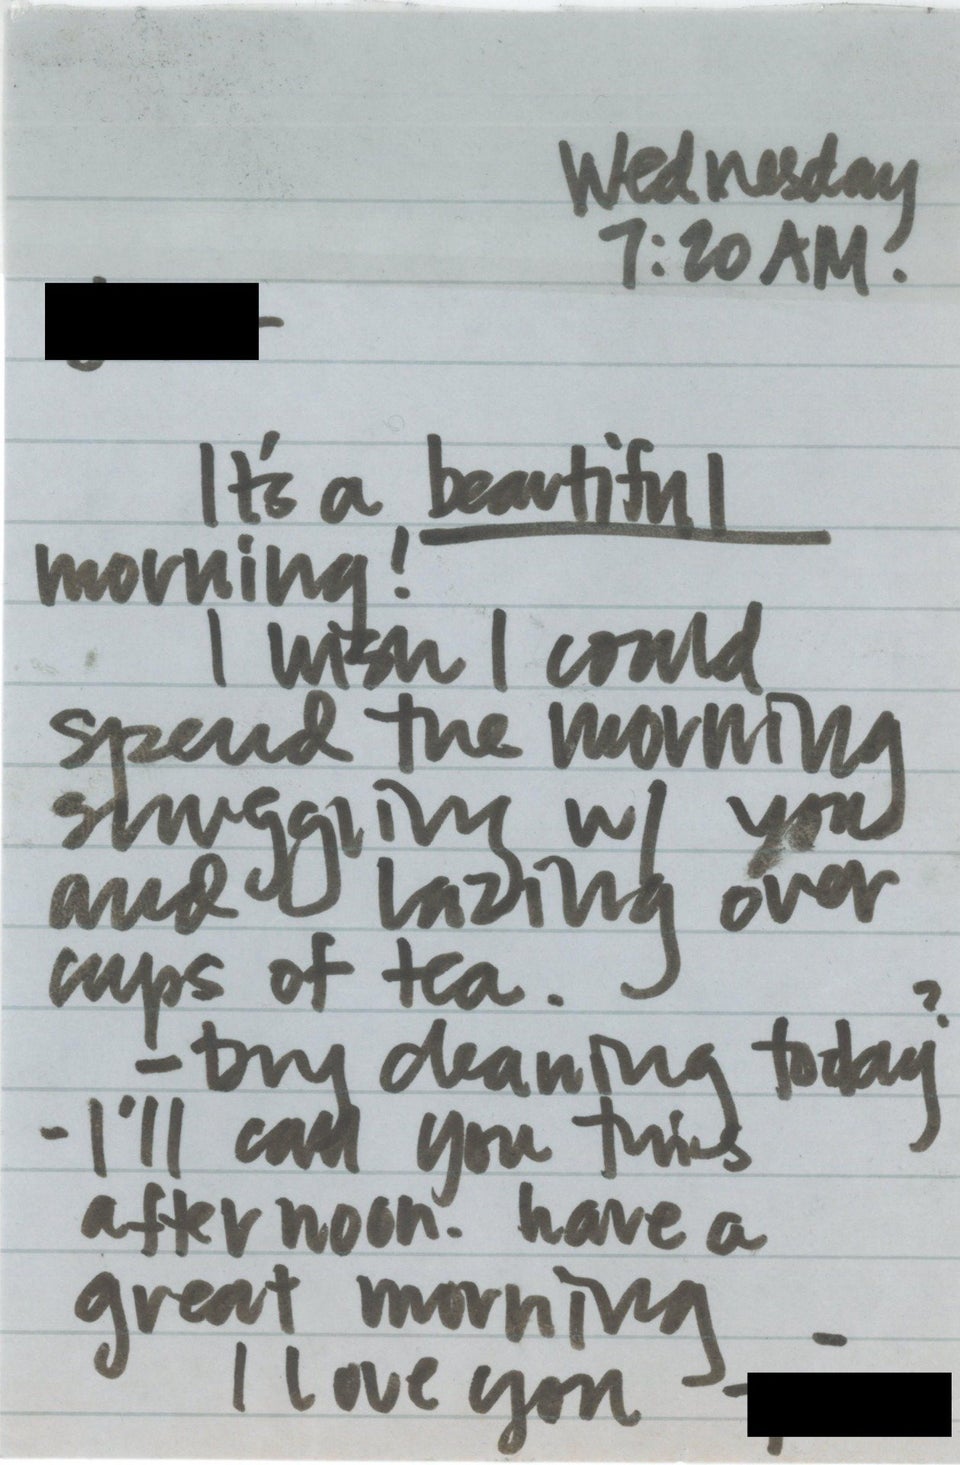 Wednesday
7:20 AM.
It's a beautiful
morning!
I wish I could
spend the morning
snuggling w/ you
and lazing over
cups of tea.
- Dry cleaning today?
- I'll call you this
afternoon. have a
great morning -
I love you -